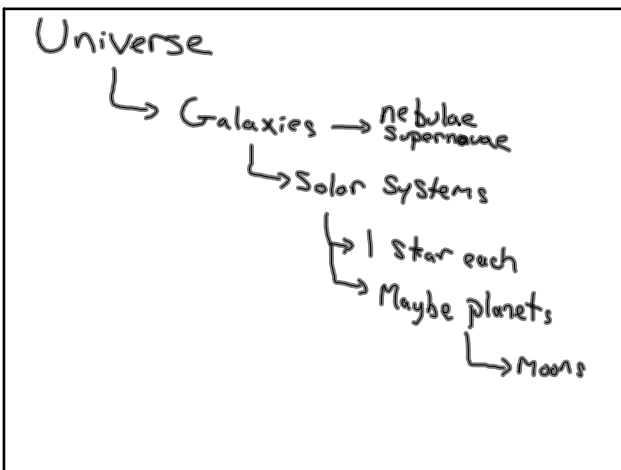 Universe
Galaxies → nebulae
supernovae
Solar Systems
1 star each
Maybe planets
Moons